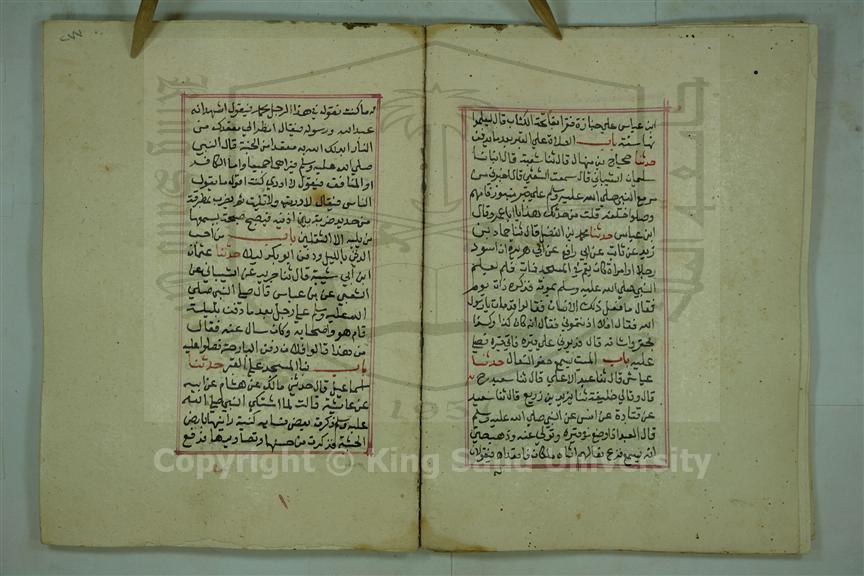 ابن عباس علي جنازة فقرا بفاتحة الكتاب قال ليعلموا
انها سنة باب الصلاة علي القبر بعد ما يدفن
حدثنا حجاج بن منهال قال ثنا شعبة قال انبانا
سلمان الشيباني قال سمعت الشعبي قال اخبرني من
مر مع النبي صلي الله عليه وسلم علي قبر منبوذ فامهم
وصلوا خلفه قلت من حدثك هذا يا ابا عمرو قال
ابن عباس حدثنا محمد بن الفضل قال ثنا حماد بن
زيد عن ثابت عن ابي رافع عن ابي هريرة ان اسود
رجلا او امراة كان يقم في المسجد فمات فلم يعلم
النبي صلي الله عليه وسلم بموته فذكره ذات يوم
فقال ما فعل ذلك الانسان فقالوا مات يا رسول
الله فقال افلا اذنتموني فقالوا انه كان كذا وكذا
قال فدلوني علي قبره فاتي قبره فصلي
عليه باب الميت يسمع خفق النعال حدثنا
عياش قال ثنا عبد الاعلي قال ثنا سعيد ح
قال وقال خليفة ثنا يزيد بن زريع قال ثنا سعيد
عن قتادة عن انس عن النبي صلي الله عليه وسلم
قال العبد اذا وضع في قبره وتولي عنه وذهب
انه يسمع قرع نعالهم اتاه ملكان فاقعداه فيقولان
له ما كنت تقول في هذا الرجل محمد فيقول اشهد انه
عبد الله ورسوله فيقال انظر الي مقعدك من
النار ابدلك الله به مقعدا من الجنة قال النبي
صلي الله عليه وسلم فيراهما جميعا واما الكافر
او المنافق فيقول لا ادري كنت اقول ما يقول
الناس فيقال لا دريت ولا تليت ثم يضرب بمطرقة
من حديد ضربة بين اذنيه فيصيح صيحة يسمعها
من يليه الا الثقلين باب من احب
الدفن بالليل ودفن ابو بكر ليلا حدثنا عثمان
ابن ابي شيبة قال ثنا جرير عن الشيباني عن
الشعبي عن بن عباس قال صلي النبي صلي
الله عليه وسلم علي رجل بعد ما دفن بليلة
قام هو واصحابه وكان سال عنه فقال
من هذا قالوا فلان دفن البارحة فصلوا عليه
باب بنا المسجد علي القبر حدثنا
اسماعيل قال حدثني مالك عن هشام عن ابيه
عن عائشة قالت لما اشتكي النبي صلي الله
عليه وسلم ذكرت بعض نسايه كنيسة راينها بارض
الحبشة فذكرت من حسنها وتصاوير فيها فرفع
Copyright © King Saud University